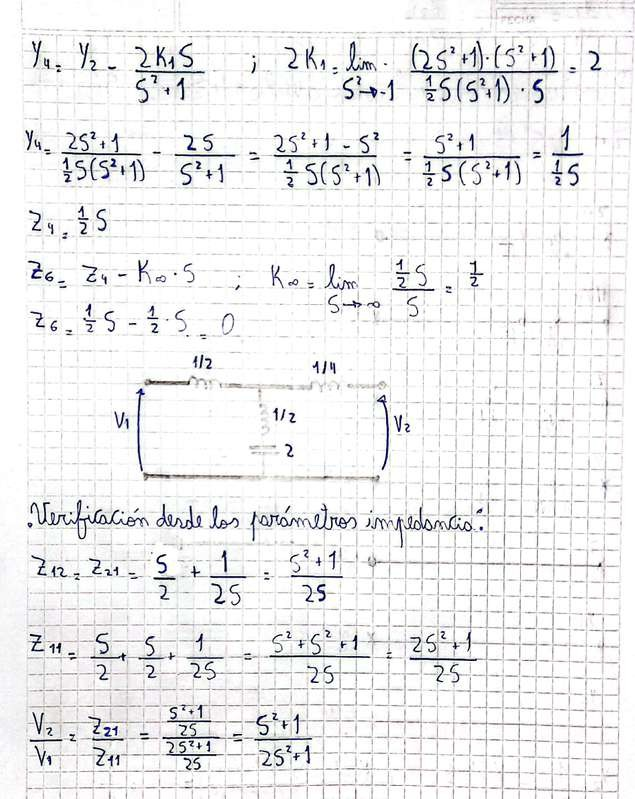 FECHA
Y₄ = Y₂ - 2K₁S / (S²+1) ; 2K₁ = lim S²→-1 (2S²+1)·(S²+1) / (½S(S²+1)·S) = 2
Y₄ = (2S²+1) / (½S(S²+1)) - 2S / (S²+1) = (2S²+1-S²) / (½S(S²+1)) = (S²+1) / (½S(S²+1)) = 1 / (½S)
Z₄ = ½S
Z₆ = Z₄ - K∞·S ; K∞ = lim S→∞ ½S / S = ½
Z₆ = ½S - ½·S = 0
1/2 1/4
V₁ 1/2 V₂
2
Verificación desde los parámetros impedancia:
Z₁₂ = Z₂₁ = S/2 + 1/2S = (S²+1) / 2S
Z₁₁ = S/2 + S/2 + 1/2S = (S²+S²+1) / 2S = (2S²+1) / 2S
V₂/V₁ = Z₂₁/Z₁₁ = ((S²+1)/2S) / ((2S²+1)/2S) = (S²+1) / (2S²+1)